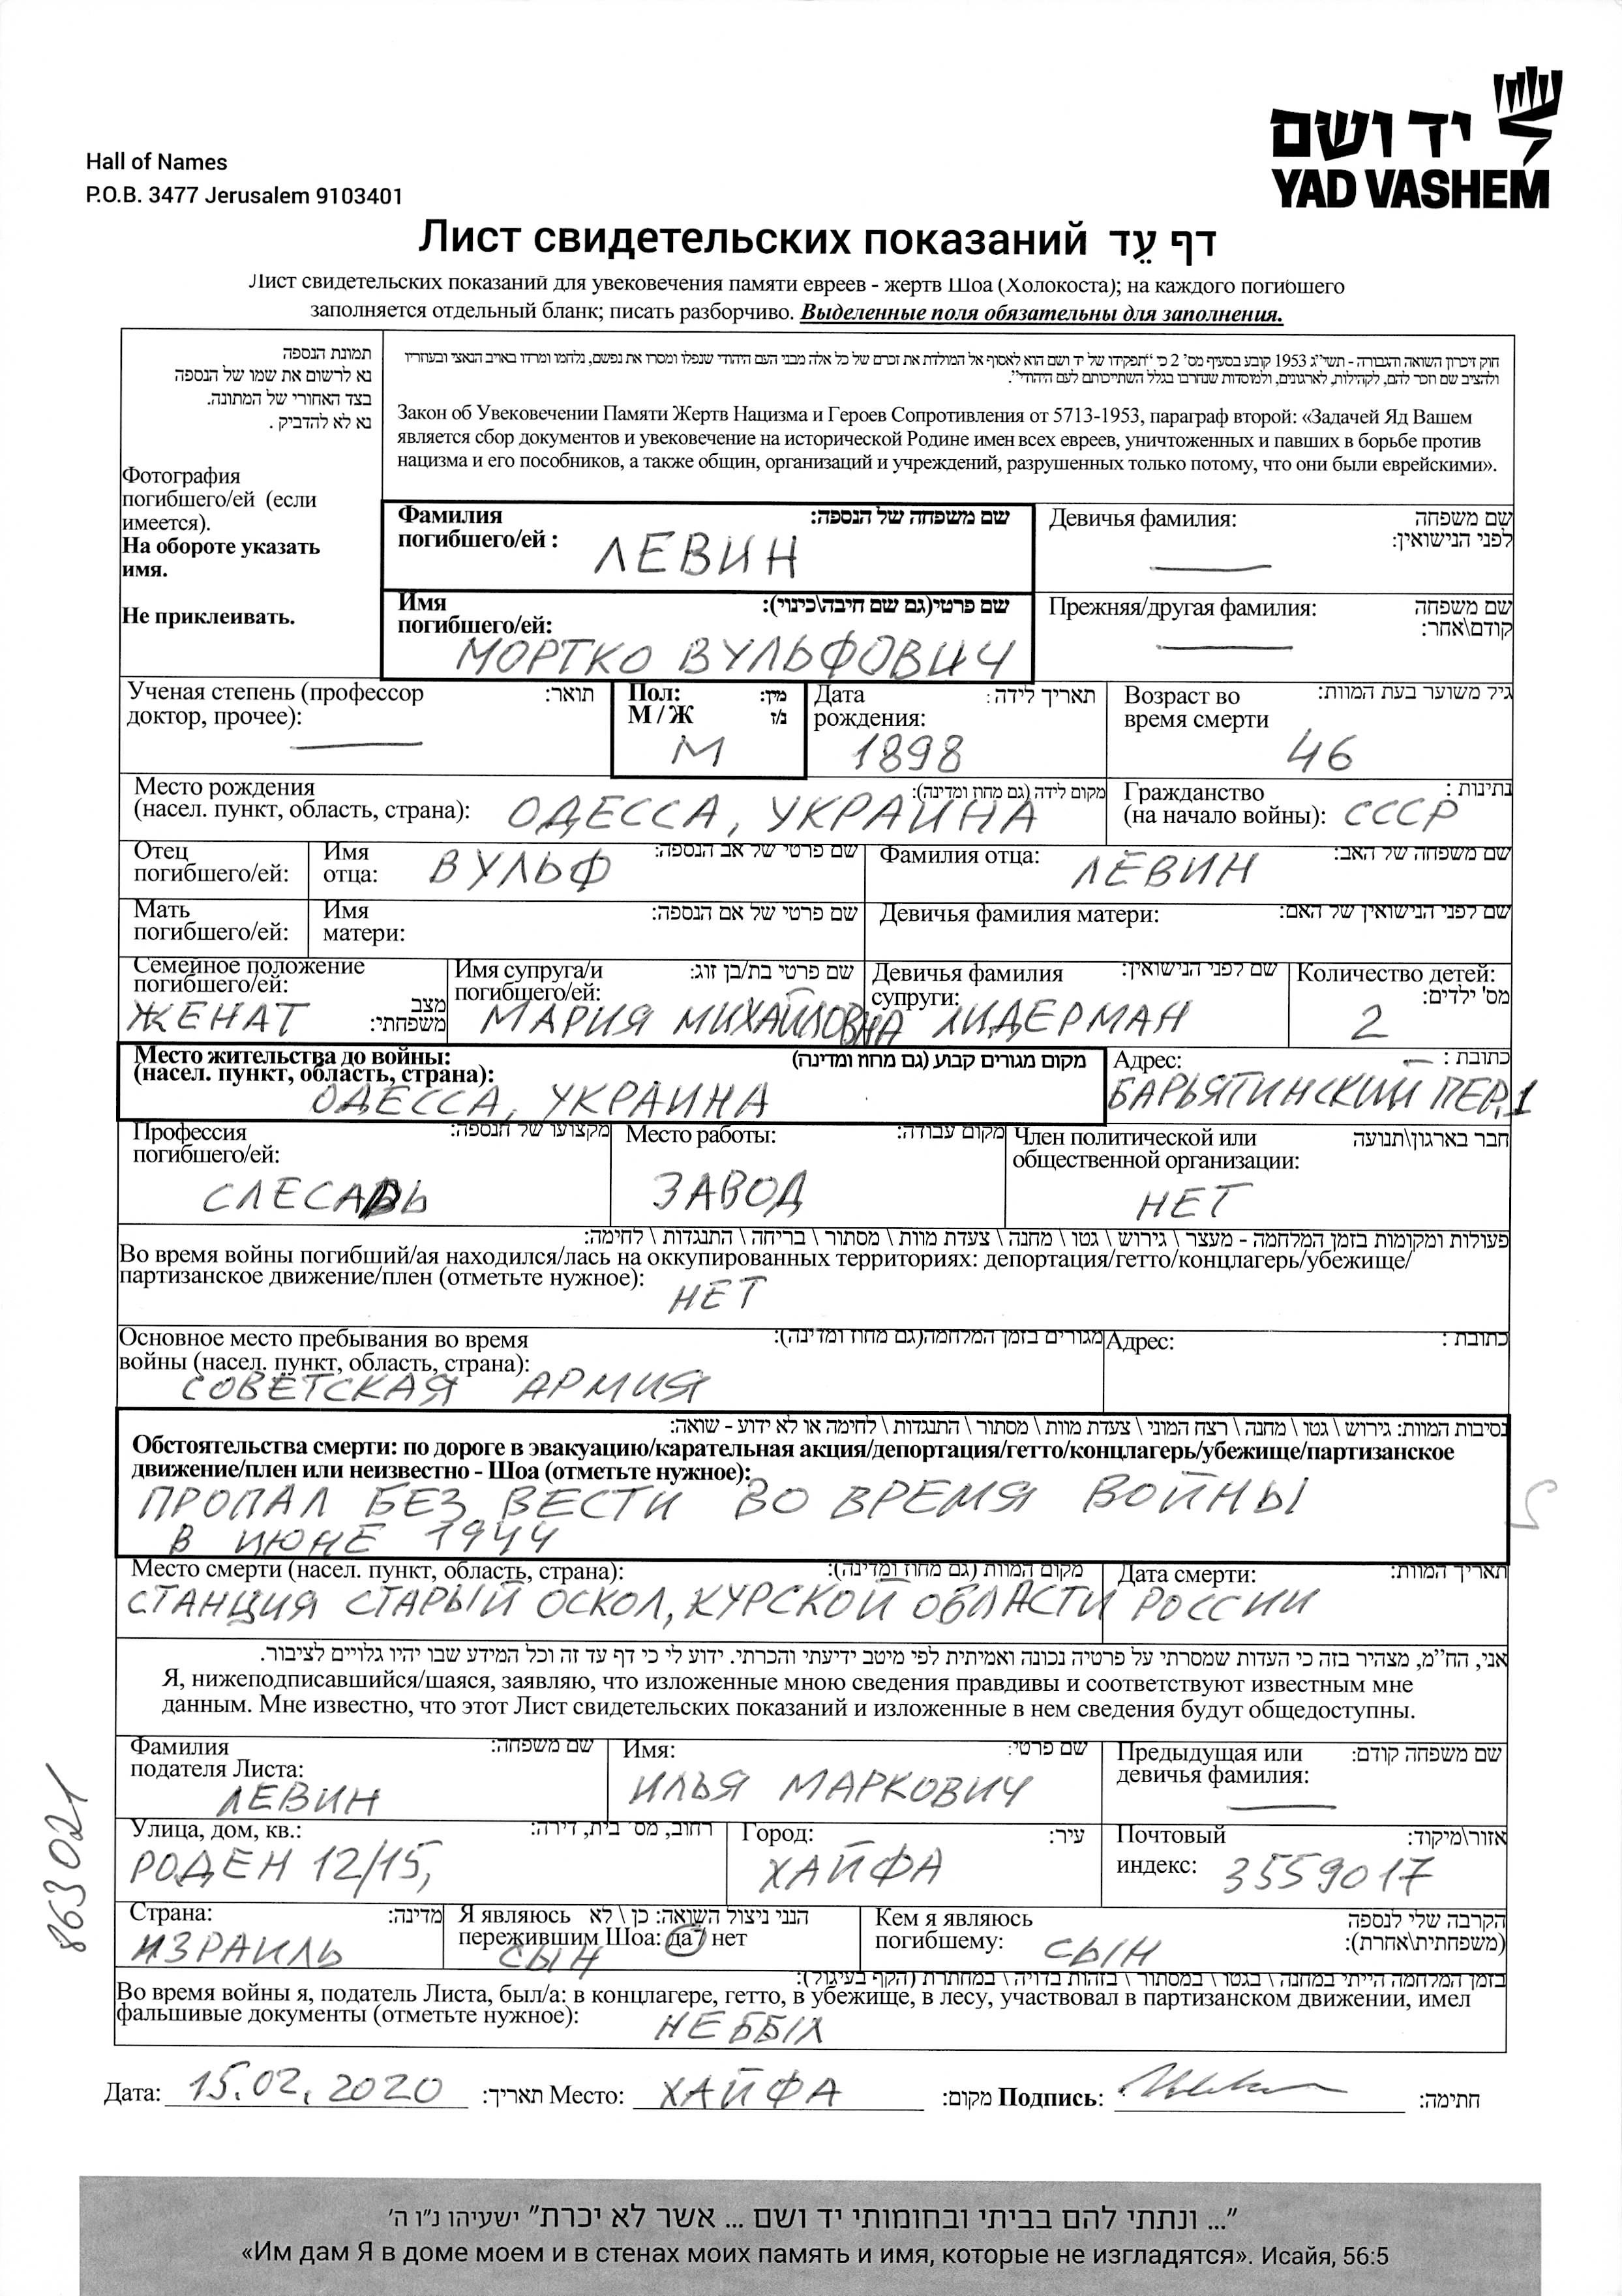 יד ושם
YAD VASHEM
Hall of Names
P.O.B. 3477 Jerusalem 9103401
Лист свидетельских показаний דף עֵד
Лист свидетельских показаний для увековечения памяти евреев - жертв Шоа (Холокоста); на каждого погибшего
заполняется отдельный бланк; писать разборчиво. Выделенные поля обязательны для заполнения.
תמונת הנספה
נא לרשום את שמו של הנספה
בצד האחורי של המתונה.
נא לא להדביק .
Фотография
погибшего/ей (если
имеется).
На обороте указать
имя.
Не приклеивать.
חוק זיכרון השואה והגבורה - תשי"ג 1953 קובע בסעיף מס' 2 כי "תפקידו של יד ושם הוא לאסוף אל המולדת את זכרם של כל אלה מבני העם היהודי שנפלו ומסרו את נפשם, נלחמו ומרדו באויב הנאצי ובעוזריו
ולהציב שם וזכר להם, לקהילות, לארגונים, ולמוסדות שנחרבו בגלל השתייכותם לעם היהודי".
Закон об Увековечении Памяти Жертв Нацизма и Героев Сопротивления от 5713-1953, параграф второй: «Задачей Яд Вашем
является сбор документов и увековечение на исторической Родине имен всех евреев, уничтоженных и павших в борьбе против
нацизма и его пособников, а также общин, организаций и учреждений, разрушенных только потому, что они были еврейскими».
Фамилия שם משפחה של הנספה:
погибшего/ей : ЛЕВИН
Девичья фамилия: שם משפחה
לפני הנישואין:
Имя שם פרטי(גם שם חיבה\כינוי):
погибшего/ей: МОРТКО ВУЛЬФОВИЧ
Прежняя/другая фамилия: שם משפחה
קודם\אחר:
Ученая степень (профессор תואר:
доктор, прочее):
Пол: מין:
М / Ж נ/ז
М
Дата תאריך לידה :
рождения:
1898
Возраст во גיל משוער בעת המוות:
время смерти
46
Место рождения
(насел. пункт, область, страна): מקום לידה (גם מחוז ומדינה):
ОДЕССА, УКРАИНА
Гражданство נתינות :
(на начало войны): СССР
Отец
погибшего/ей:
Имя שם פרטי של אב הנספה:
отца: ВУЛЬФ
Фамилия отца: שם משפחה של האב:
ЛЕВИН
Мать
погибшего/ей:
Имя שם פרטי של אם הנספה:
матери:
Девичья фамилия матери: שם לפני הנישואין של האם:
Семейное положение
погибшего/ей: מצב
משפחתי:
ЖЕНАТ
Имя супруга/и שם פרטי בת/בן זוג:
погибшего/ей:
МАРИЯ МИХАЙЛОВНА
Девичья фамилия שם לפני הנישואין:
супруги:
ЛИДЕРМАН
Количество детей:
מס' ילדים:
2
Место жительства до войны: מקום מגורים קבוע (גם מחוז ומדינה)
(насел. пункт, область, страна):
ОДЕССА, УКРАИНА
Адрес: כתובת :
БАРЬЯТИНСКИЙ ПЕР,1
Профессия מקצועו של הנספה:
погибшего/ей:
СЛЕСАРЬ
Место работы: מקום עבודה:
ЗАВОД
Член политической или חבר בארגון\תנועה
общественной организации:
НЕТ
פעולות ומקומות בזמן המלחמה - מעצר \ גירוש \ גטו \ מחנה \ צעדת מוות \ מסתור \ בריחה \ התנגדות \ לחימה:
Во время войны погибший/ая находился/лась на оккупированных территориях: депортация/гетто/концлагерь/убежище/
партизанское движение/плен (отметьте нужное):
НЕТ
Основное место пребывания во время מגורים בזמן המלחמה(גם מחוז ומדינה):
войны (насел. пункт, область, страна):
СОВЕТСКАЯ АРМИЯ
Адрес: כתובת :
נסיבות המוות: גירוש \ גטו \ מחנה \ רצח המוני \ צעדת מוות \ מסתור \ התנגדות \ לחימה או לא ידוע - שואה:
Обстоятельства смерти: по дороге в эвакуацию/карательная акция/депортация/гетто/концлагерь/убежище/партизанское
движение/плен или неизвестно - Шоа (отметьте нужное):
ПРОПАЛ БЕЗ ВЕСТИ ВО ВРЕМЯ ВОЙНЫ
В ИЮНЕ 1944
Место смерти (насел. пункт, область, страна): מקום המוות (גם מחוז ומדינה):
Дата смерти: תאריך המוות:
СТАНЦИЯ СТАРЫЙ ОСКОЛ, КУРСКОЙ ОБЛАСТИ РОССИИ
אני, הח"מ, מצהיר בזה כי העדות שמסרתי על פרטיה נכונה ואמיתית לפי מיטב ידיעתי והכרתי. ידוע לי כי דף עד זה וכל המידע שבו יהיו גלויים לציבור.
Я, нижеподписавшийся/шаяся, заявляю, что изложенные мною сведения правдивы и соответствуют известным мне
данным. Мне известно, что этот Лист свидетельских показаний и изложенные в нем сведения будут общедоступны.
Фамилия שם משפחה:
подателя Листа:
ЛЕВИН
Имя: שם פרטי:
ИЛЬЯ МАРКОВИЧ
Предыдущая или שם משפחה קודם:
девичья фамилия:
Улица, дом, кв.: רחוב, מס' בית, דירה:
РОДЕН 12/15,
Город: עיר:
ХАЙФА
Почтовый אזור\מיקוד:
индекс: 3559017
Страна: מדינה:
ИЗРАИЛЬ
Я являюсь הנני ניצול השואה: כן \ לא
пережившим Шоа: да / нет
СЫН
Кем я являюсь הקרבה שלי לנספה
погибшему: (משפחתית\אחרת):
СЫН
בזמן המלחמה הייתי במחנה \ בגטו \ במסתור \ בזהות בדויה \ במחתרת (הקף בעיגול):
Во время войны я, податель Листа, был/а: в концлагере, гетто, в убежище, в лесу, участвовал в партизанском движении, имел
фальшивые документы (отметьте нужное):
НЕ БЫЛ
Дата: 15.02.2020 תאריך: Место: ХАЙФА מקום: Подпись: חתימה:
863021
"... ונתתי להם בביתי ובחומותי יד ושם ... אשר לא יכרת" ישעיהו נ"ו ה'
«Им дам Я в доме моем и в стенах моих память и имя, которые не изгладятся». Исайя, 56:5